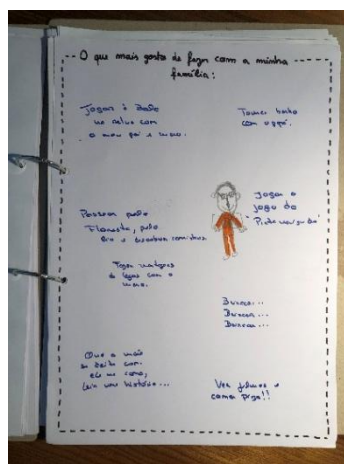 O que mais gosto de fazer com a minha
família:
Jogar à bola
na relva com
o meu pai e mano.
Tomar banho
com o papá.
Jogar o
jogo do
Passear pela
Floresta, pelo
rio e
Fazer
de legos com o
mano.
Dançar...
Dançar...
Dançar...
Que a mãe
se deite com
ele na cama,
leia uma história...
Ver filmes e
comer pizza!!